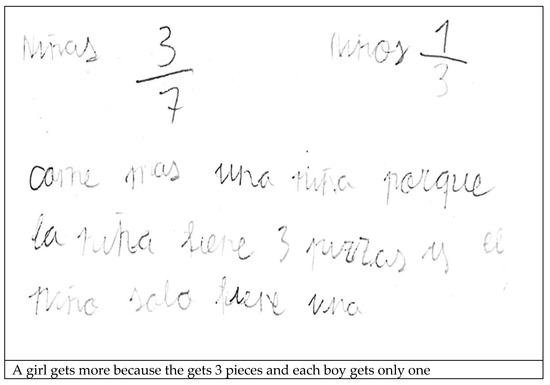 Niñas 3/7 Niños 1/3
come mas una niña porque
la niña tiene 3 pizzas y el
niño solo tiene una
A girl gets more because the gets 3 pieces and each boy gets only one